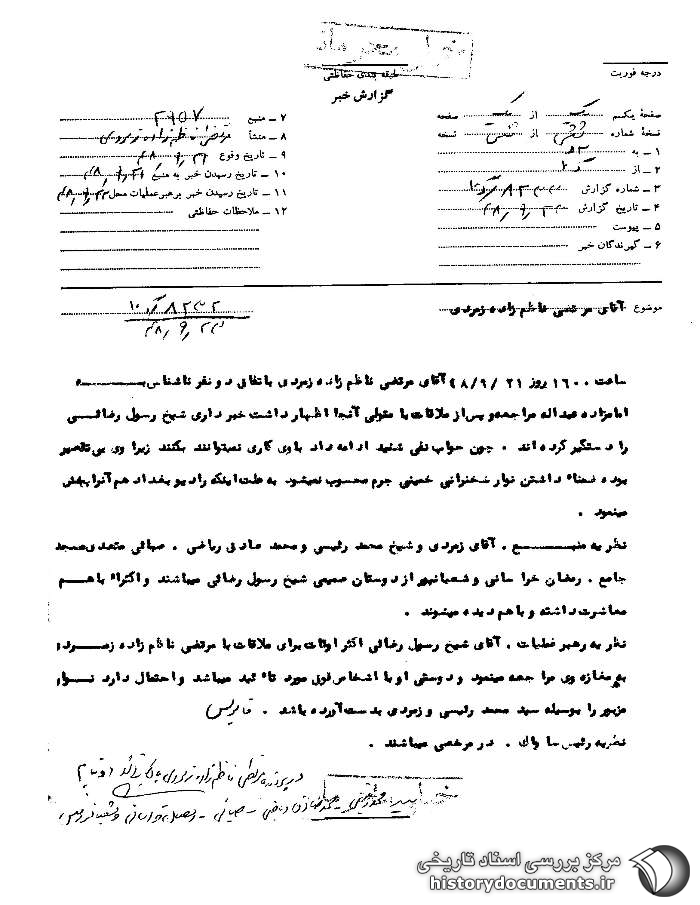 طبقه بندی حفاظتی
گزارش خبر
درجه فوریت
صفحه یکم از یک صفحه
نسخه شماره از نسخه
۱ ـ به
۲ ـ از
۳ ـ شماره گزارش
۴ ـ تاریخ گزارش
۵ ـ پیوست
۶ ـ گیرندگان خبر
۷ ـ منبع ۲۹۵۷
۸ ـ منشأ مرتضی ناظم زاده زمردی
۹ ـ تاریخ وقوع ۴۸/۹/۲۱
۱۰ ـ تاریخ رسیدن خبر به منبع ۴۸/۹/۲۱
۱۱ ـ تاریخ رسیدن خبر برهبر عملیات محل
۱۲ ـ ملاحظات حفاظتی
موضوع آقای مرتضی ناظم زاده زمردی
ساعت ۱۶۰۰ روز ۴۸/۹/۲۱ آقای مرتضی ناظم زاده زمردی باتفاق دو نفر ناشناس بـــه
امامزاده عبداله مراجعه و پس از ملاقات با متولی آنجا اظهار داشت خبر داری شیخ رسول رضائـــی
را دستگیر کرده اند . چون جواب نفی شنید ادامه داد با وی کاری نمیتوانند بکنند زیرا وی بی تقصیر
بوده ضمناً داشتن نوار سخنرانی خمینی جرم محسوب نمیشود به علت اینکه رادیو بغداد هم آنرا پخش
مینمود .
نظریه منبـــع . آقای زمردی و شیخ محمد رئیسی و محمد صادق ریاضی . صبائی متصدی مسجد
جامع . رمضان خراسانی و شعبانپور از دوستان صمیمی شیخ رسول رضائی میباشند و اکثراً با هـم
معاشرت داشته و با هم دیده میشوند .
نظریه رهبر عملیات . آقای شیخ رسول رضائی اکثر اوقات برای ملاقات با مرتضی ناظم زاده زمـــردی
به مغازه وی مراجعه مینمود و دوستی او با اشخاص فوق مورد تائید میباشد و احتمال دارد نـــوار
مزبور را بوسیله سید محمد رئیسی و زمردی بدست آورده باشد .
نظریه رئیس ساواک . در مرخصی میباشند .
مرکز بررسی اسناد تاریخی
historydocuments.ir